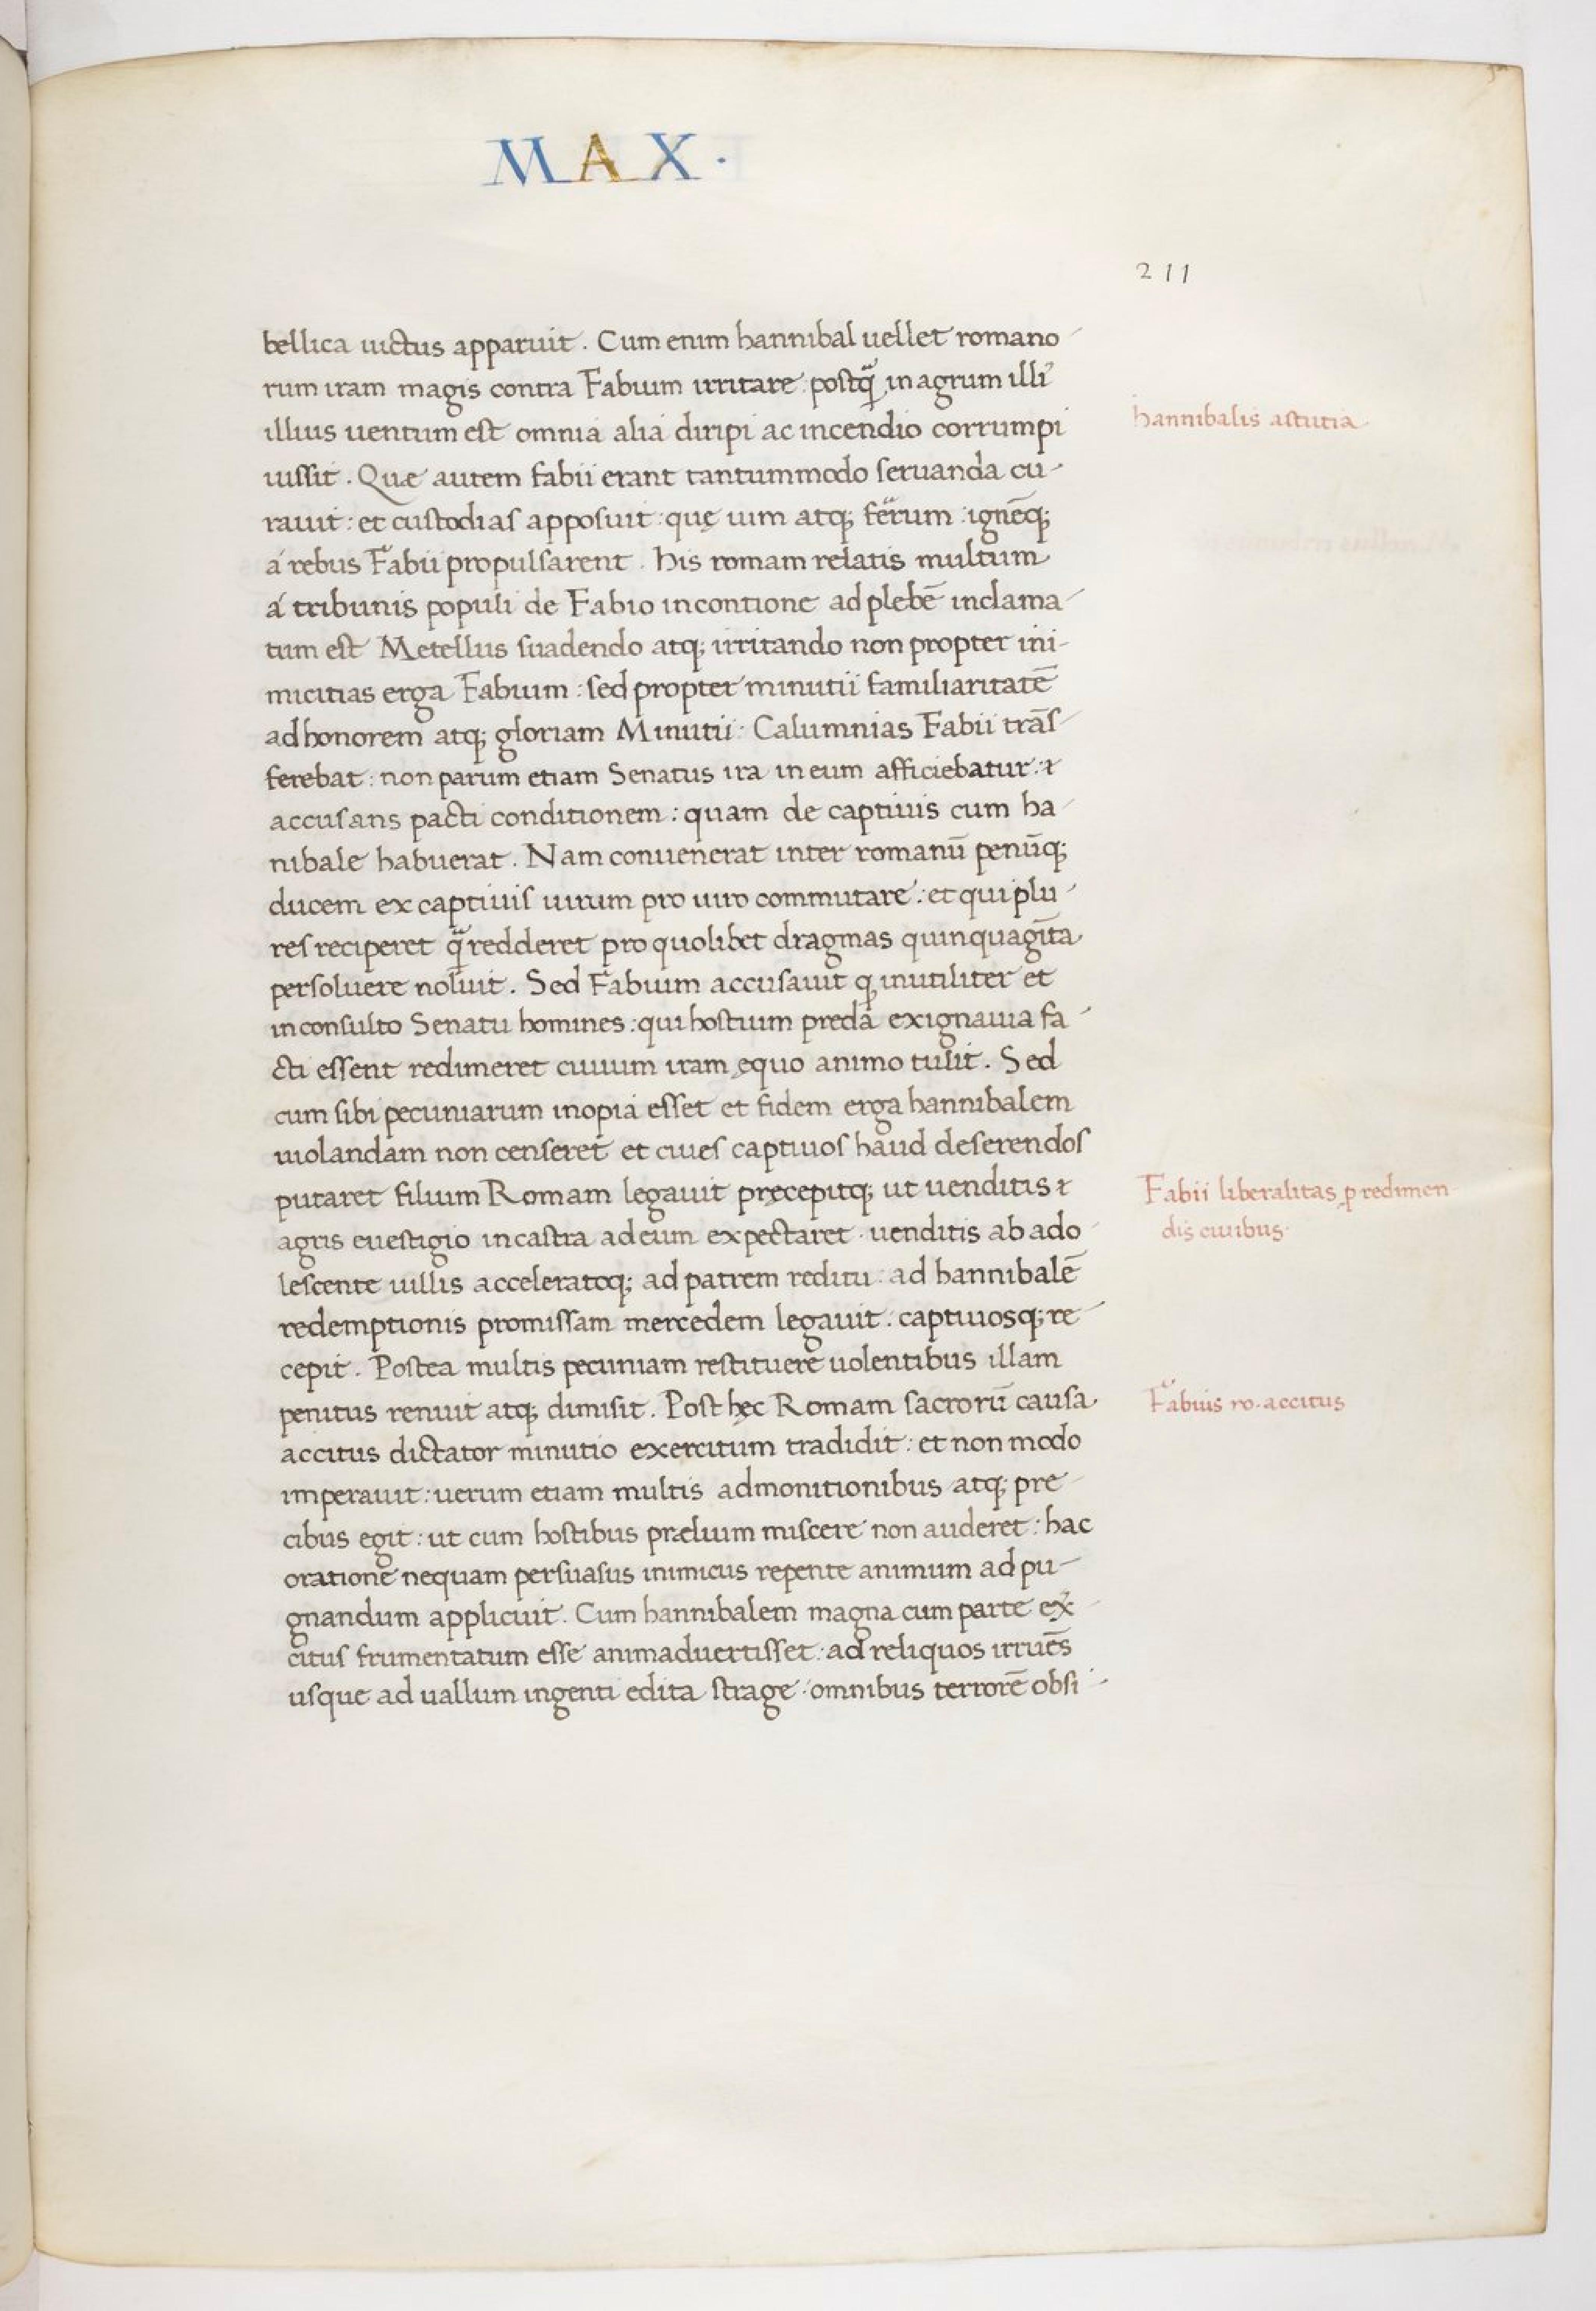 MAX·
211
bellica uictus apparuit. Cum enim hannibal uellet romano
rum iram magis contra Fabium irritare: postq̃ in agrum illi'
hannibalis astutia
illius uentum est omnia alia diripi ac incendio corrumpi
iussit. Quæ autem fabii erant tantummodo seruanda cu-
rauit: et custodias apposuit: quę uim atq; ferrum: ignēq;
á rebus Fabii propulsarent. his romam relatis multum
á tribunis populi de Fabio in contione ad plebē inclama
tum est Metellus suadendo atq; irritando non propter ini-
micitias erga Fabium: sed propter minutii familiaritatē
ad honorem atq; gloriam Minutii: Calumnias Fabii trās
ferebat: non parum etiam Senatus ira in eum afficiebatur: ⁊
accusans pacti conditionem: quam de captiuis cum ha
nibale habuerat. Nam conuenerat inter romanū penūq;
ducem ex captiuis uirum pro uiro commutare: et qui plu
res reciperet q̃ redderet pro quolibet dragmas quinquagīta
persoluere noluit. Sed Fabium accusauit ꝙ inutiliter et
inconsulto Senatu homines: qui hostium preda ex ignauia fa
cti essent redimeret ciuium iram ęquo animo tulit. Sed
cum sibi pecuniarum inopia esset et fidem erga hannibalem
uiolandam non censeret et ciues captiuos haud deserendos
putaret filium Romam legauit pręcepitq; ut uenditis ⁊
Fabii liberalitas ꝓ redimen
agris euestigio in castra ad eum expectaret· uenditis ab ado
dis ciuibus·
lescente uillis acceleratoq; ad patrem reditu: ad hannibalē
redemptionis promissam mercedem legauit: captiuosq; re
cepit. Postea multis pecuniam restituere uolentibus illam
penitus renuit atq; dimisit. Post hęc Romam sacrorū causa
Fabius ro. accitus
accitus dictator minutio exercitum tradidit: et non modo
imperauit: uerum etiam multis admonitionibus atq; pre
cibus egit: ut cum hostibus prælium miscere non auderet: hac
oratione nequam persuasus inimicus repente animum ad pu-
gnandum applicuit. Cum hannibalem magna cum parte ex̓
citus frumentatum esse animaduertisset: ad reliquos irruēs
usque ad uallum ingenti edita strage: omnibus terrorē obsi